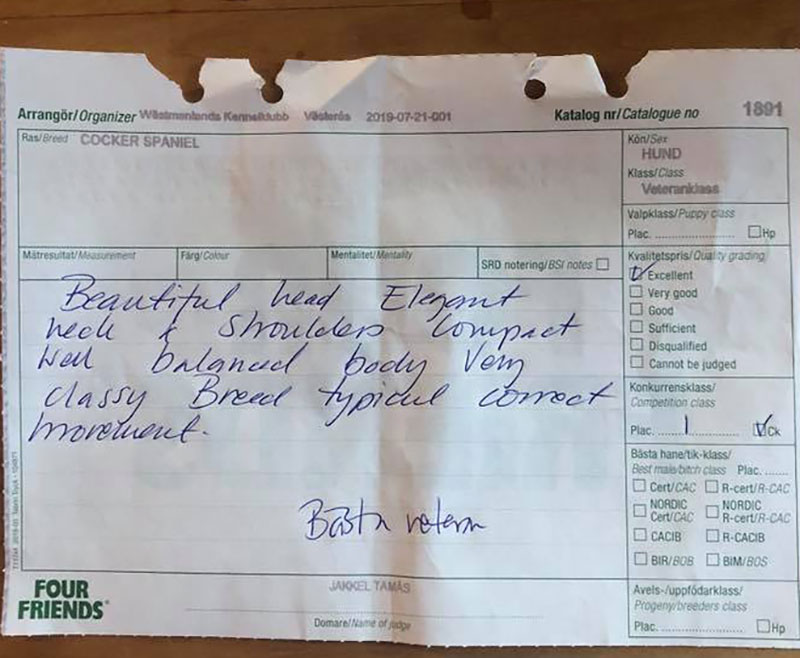 Arrangör/Organizer Västmanlands Kennelklubb Västerås 2019-07-21-001 Katalog nr/Catalogue no 1891
Ras/Breed COCKER SPANIEL
Kön/Sex
HUND
Klass/Class
Veteranklass
Valpklass/Puppy class
Plac. Hp
Mätresultat/Measurement Färg/Colour Mentalitet/Mentality SRD notering/BSI notes
Kvalitetspris/Quality grading
Excellent
Very good
Good
Sufficient
Disqualified
Cannot be judged
Beautiful head Elegant
neck & shoulders Compact
well balanced body Very
classy Breed typical correct
movement.
Bästa veteran
Konkurrensklass/
Competition class
Plac. 1 Ck
Bästa hane/tik-klass/
Best male/bitch class Plac.
Cert/CAC R-cert/R-CAC
NORDIC Cert/CAC NORDIC R-cert/R-CAC
CACIB R-CACIB
BIR/BOB BIM/BOS
Avels-/uppfödarklass/
Progeny/breeders class
Plac. Hp
FOUR
FRIENDS
JAKKEL TAMÁS
Domare/Name of judge